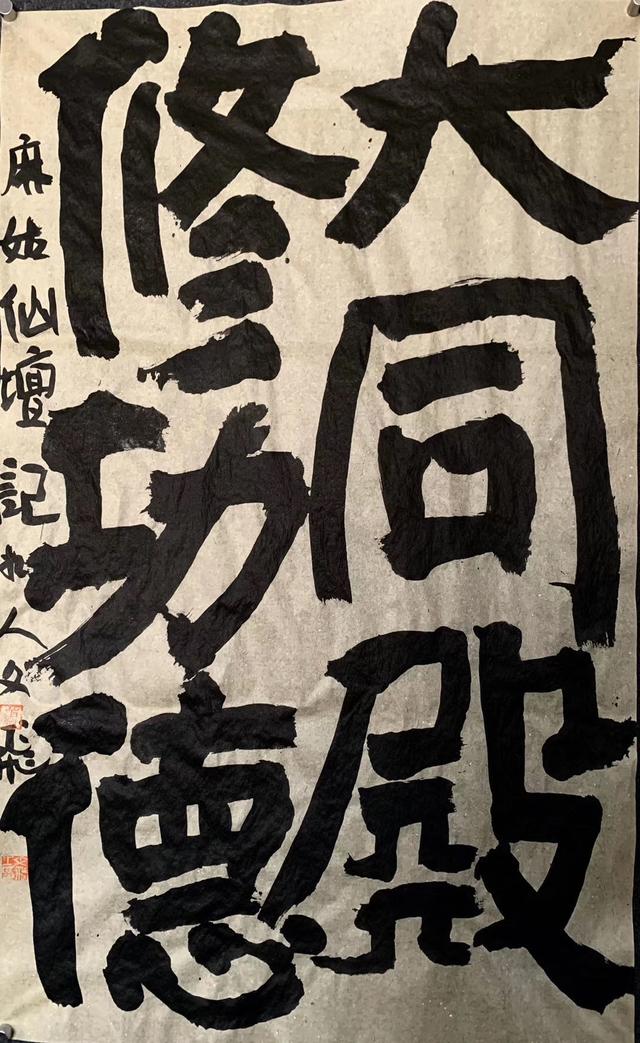 大同殿
修功德
麻姑仙壇記 人文